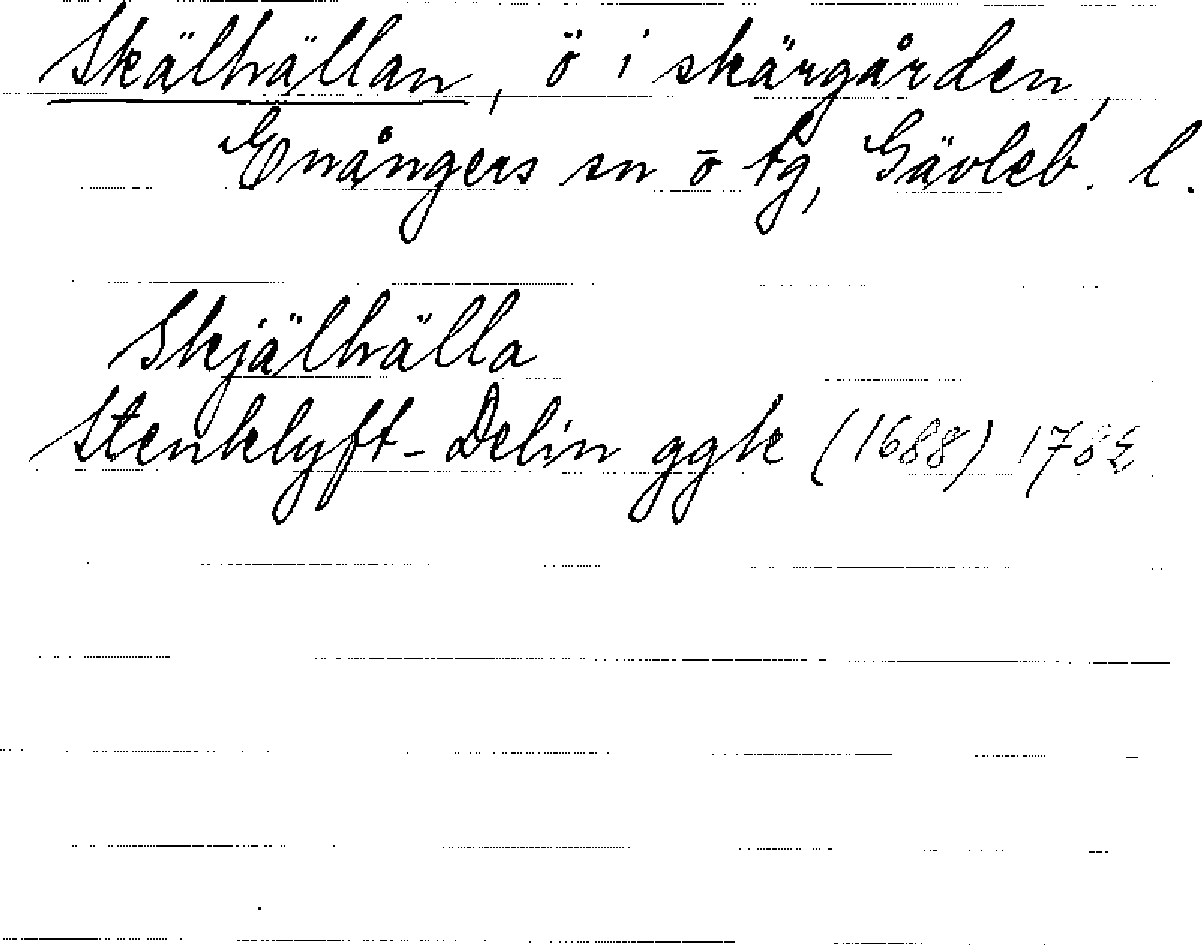 Skälhällan, ö i skärgården,
Enångers sn o tg, Gävleb. l.
Skjälhälla
Stenklyft-Delin ggk (1688) 1782